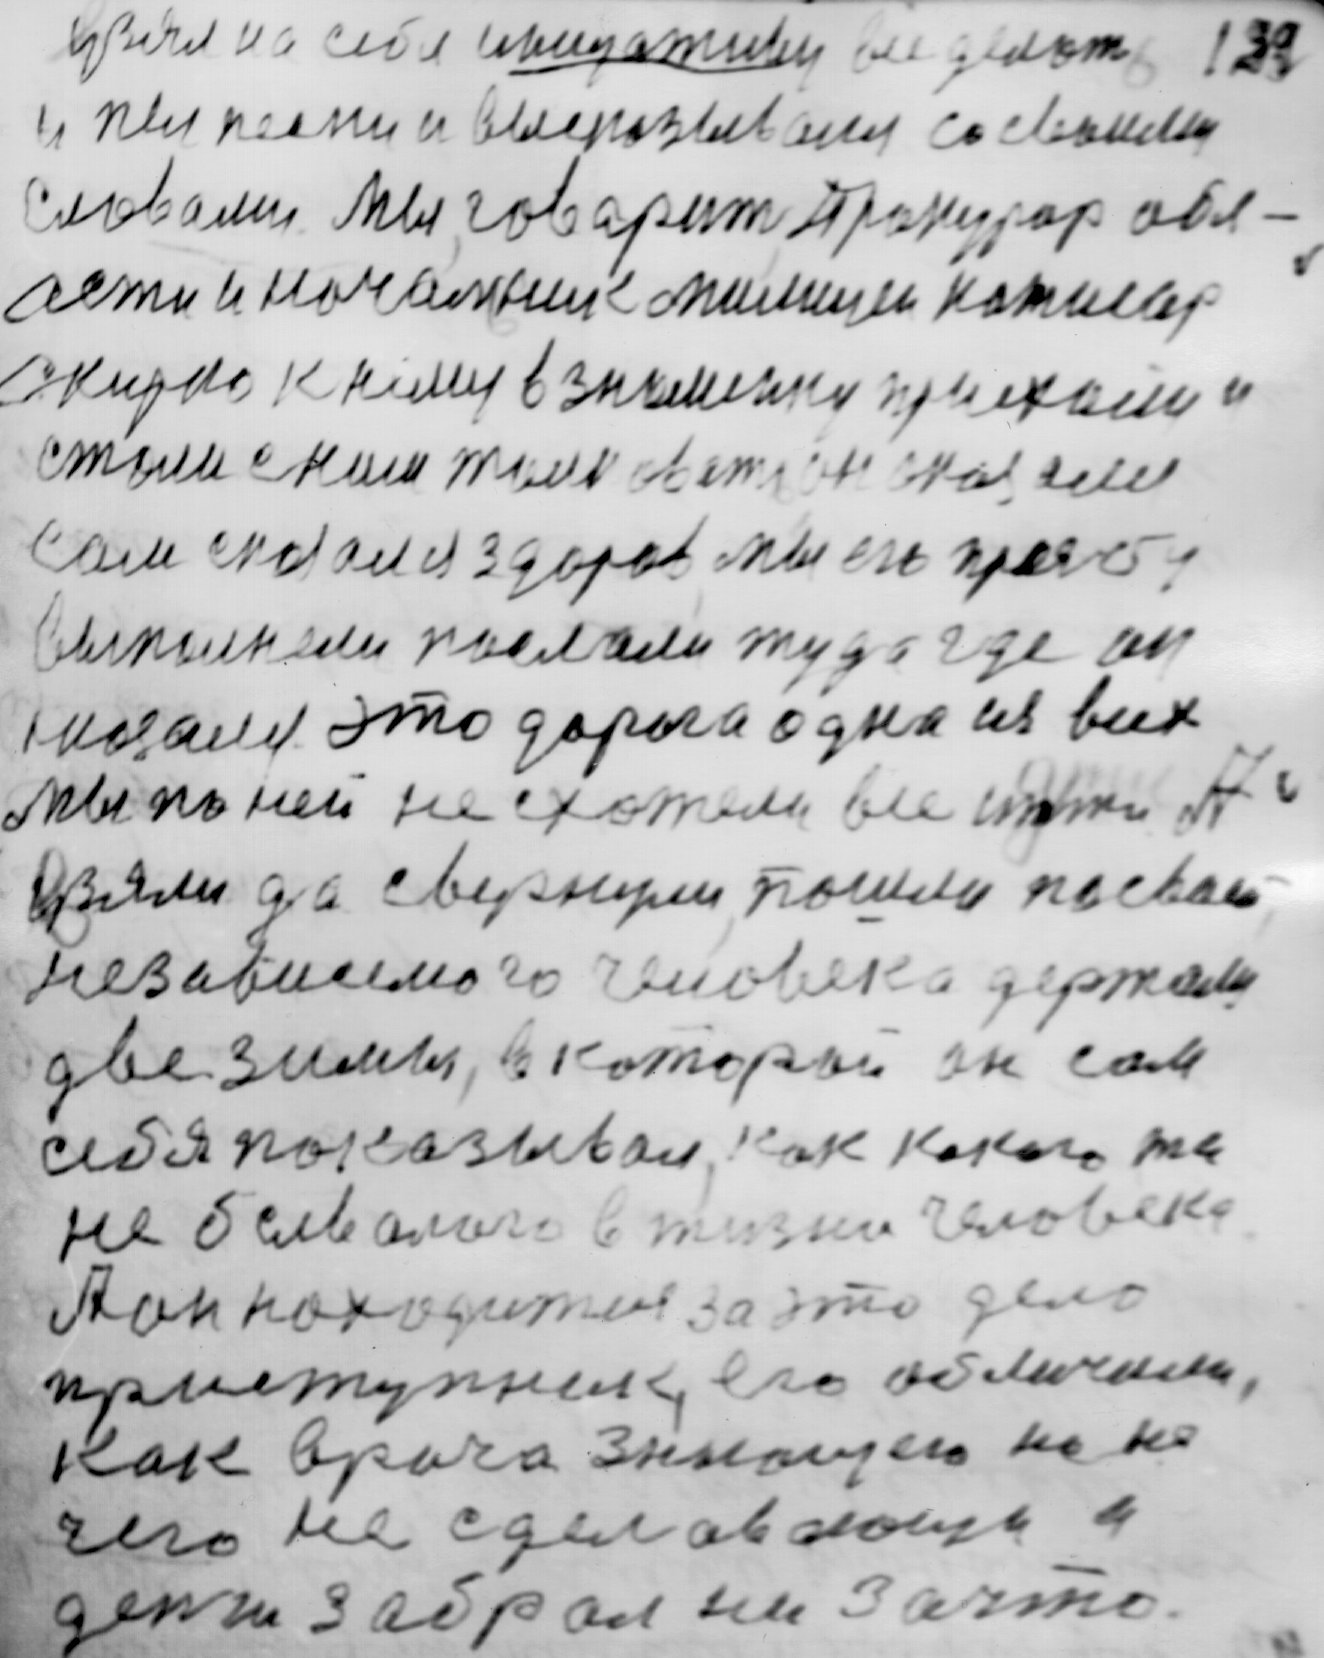 взял на себя инициативу все делать 139
и пел песни и высказывался со своими
словами. Мы, говорит, Прокурор обл-
асти и начальник милиции
к нему в приехали и
стали с ним он сказал
сам сказал я здоров, мы его прозьбу
выполнели послали туда где он
сказал. Это дорога одна из всех
мы по ней не схотели все итти А
взяли да свернули, пошли по своей,
независемого человека держали
две зимы, в которой он сам
себя показывал, как какого то
не бывалого в жизни человека.
А он находится за это дело
приступник, его обличили,
как врача знающего но не
чего не сделавающи и
денги забрал ни за что.